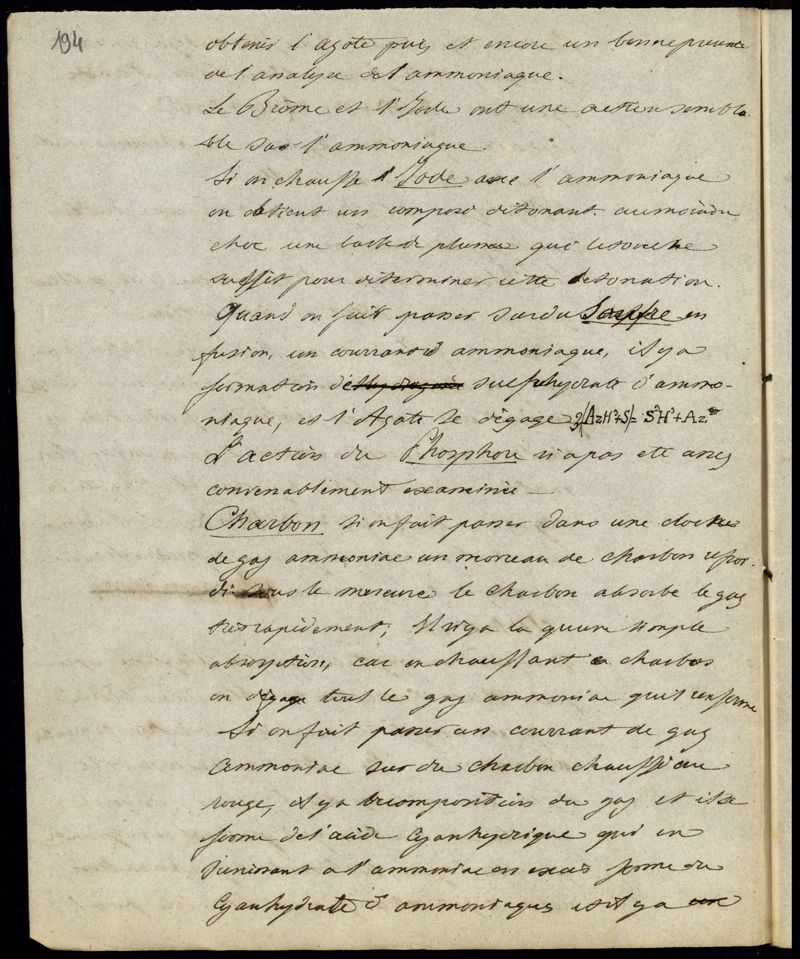 194
obtenir l'azote pur, et encore un bonne preuve
de l'analyse de l'ammoniaque.
Le Brôme et l'Iode ont une action sembla
ble sur l'ammoniaque.
Si on chauffe l'Iode avec l'ammoniaque
on obtient un composé détonant. au moindre
choc une barbe de plume qui le touche
suffit pour déterminer cette detonation.
Quand on fait passer sur du Soufre en
fusion, un courrant d'ammoniaque, il y a
formation de sulfhydrate d'ammo-
niaque, et l'Azote se dégage 3(AzH³+S)= S³H³+Az.
L'action du Phosphore n'a pas eté assez
convenablement examinée
Charbon si on fait passer dans une cloche
de gaz ammoniac un morceau de charbon refroi
di sous le mercure le charbon absorbe le gaz
très rapidement; Il n'y a la qu'une simple
absorption, car en chauffant ce charbon
on dégage tout le gaz ammoniac qu'il renferme
Si on fait passer un courrant de gaz
ammoniac sur du charbon chauffé au
rouge, il y a decomposition du gaz et il se
forme de l'acide Cyanhydrique qui en
s'unissant a l'ammoniac en excès forme du
Cyanhydrate d'ammoniaque, et il y a